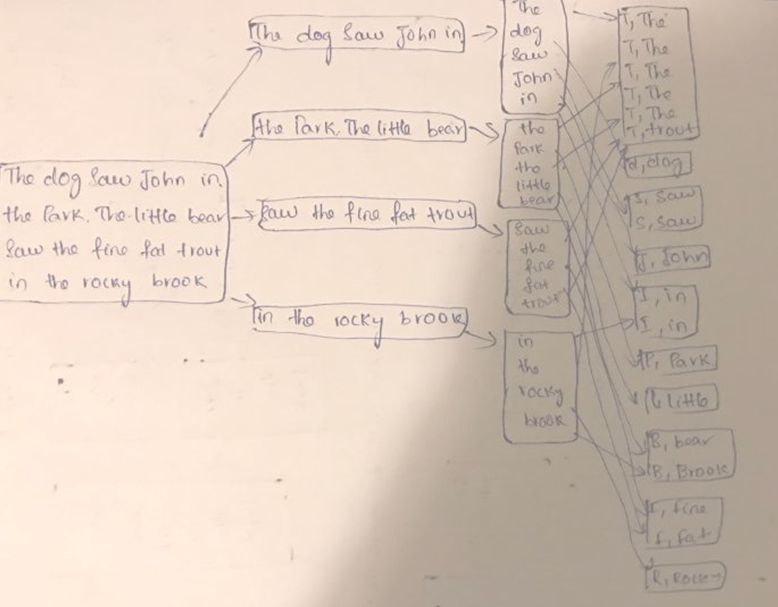 The dog Saw John in.
the Park. The little bear
Saw the fine fat trout
in the rocky brook
The dog Saw John in
the Park. The little bear
Saw the fine fat trout
in the rocky brook
The
dog
Saw
John
in
the
Park
the
little
bear
Saw
the
fine
fat
trout
in
the
rocky
brook
T, The
T, The
T, The
T, The
T, The
T, trout
d, dog
S, Saw
S, Saw
J, John
I, in
I, in
P, Park
l, little
B, bear
B, Brook
f, fine
f, fat
R, Rocky